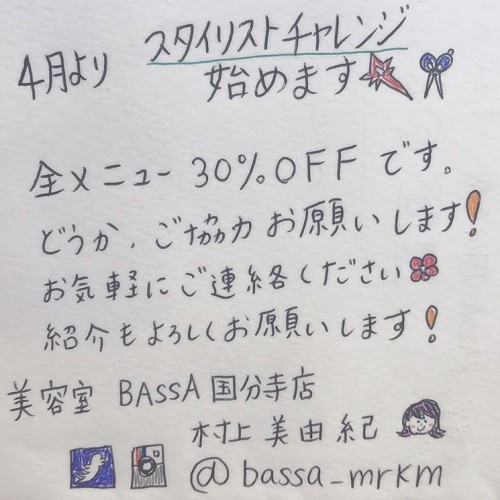 4月より スタイリストチャレンジ
始めます
全メニュー 30%OFF です。
どうか、ご協力お願いします!
お気軽にご連絡ください
紹介もよろしくお願いします!
美容室 BASSA 国分寺店
村上 美由紀
@bassa_mrkm